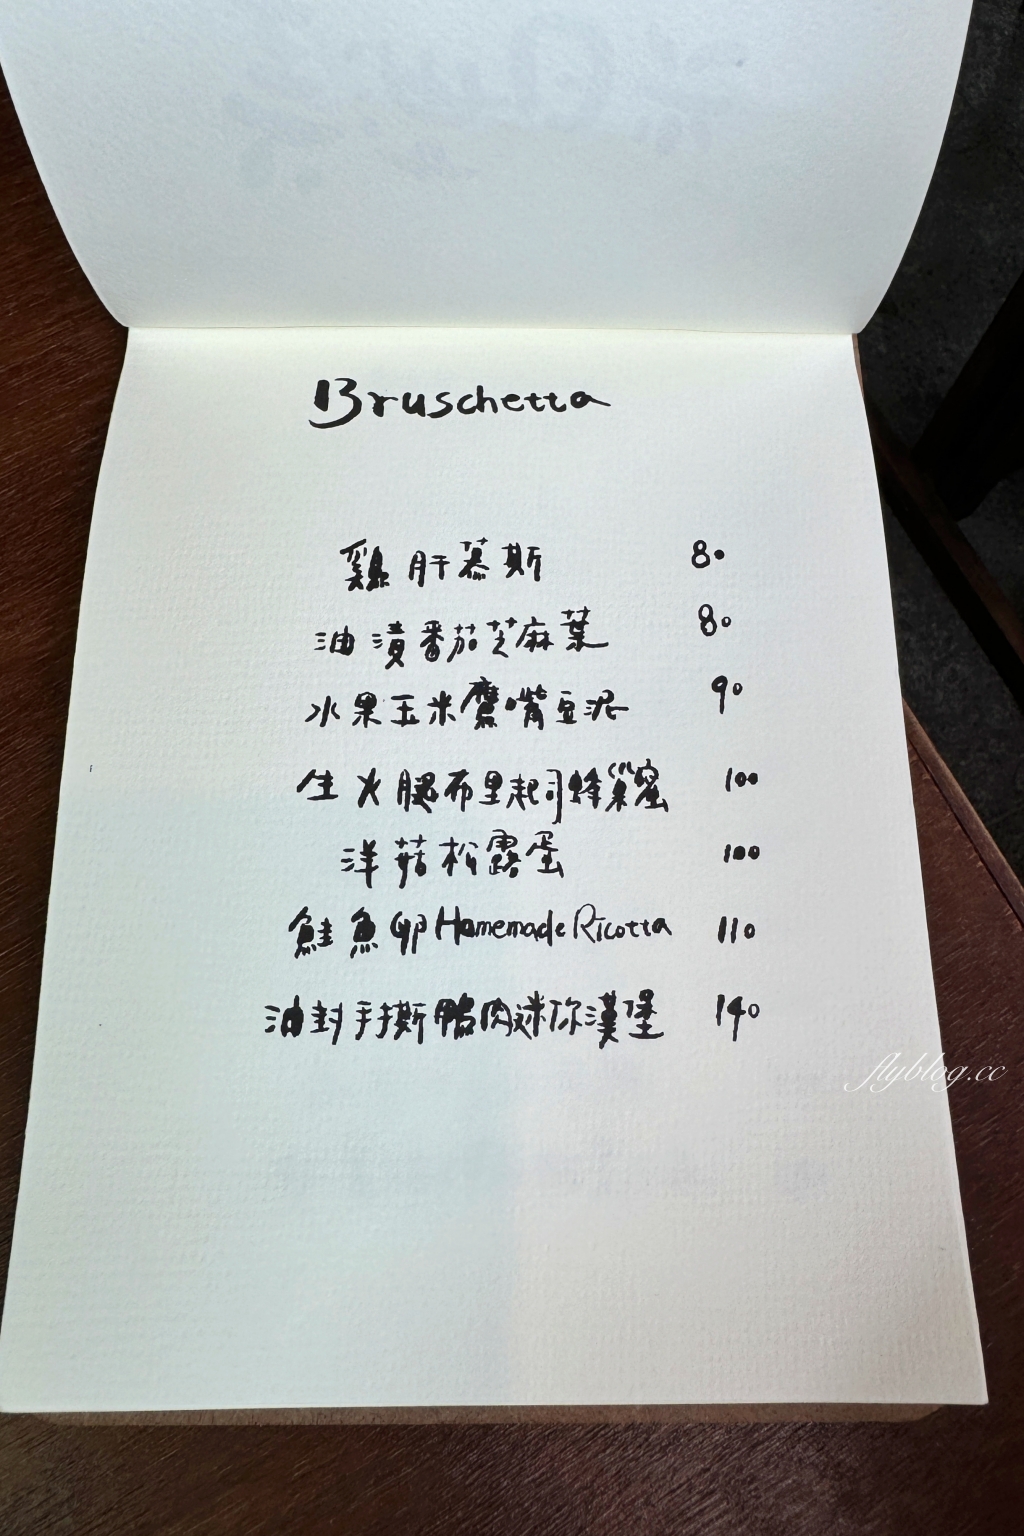 Bruschetta
雞肝慕斯 80
油漬番茄芝麻葉 80
水果玉米鷹嘴豆泥 90
生火腿布里起司蜂巢蜜 100
洋菇松露蛋 100
鮭魚卵Homemade Ricotta 110
油封手撕鴨肉迷你漢堡 140
flyblog.cc